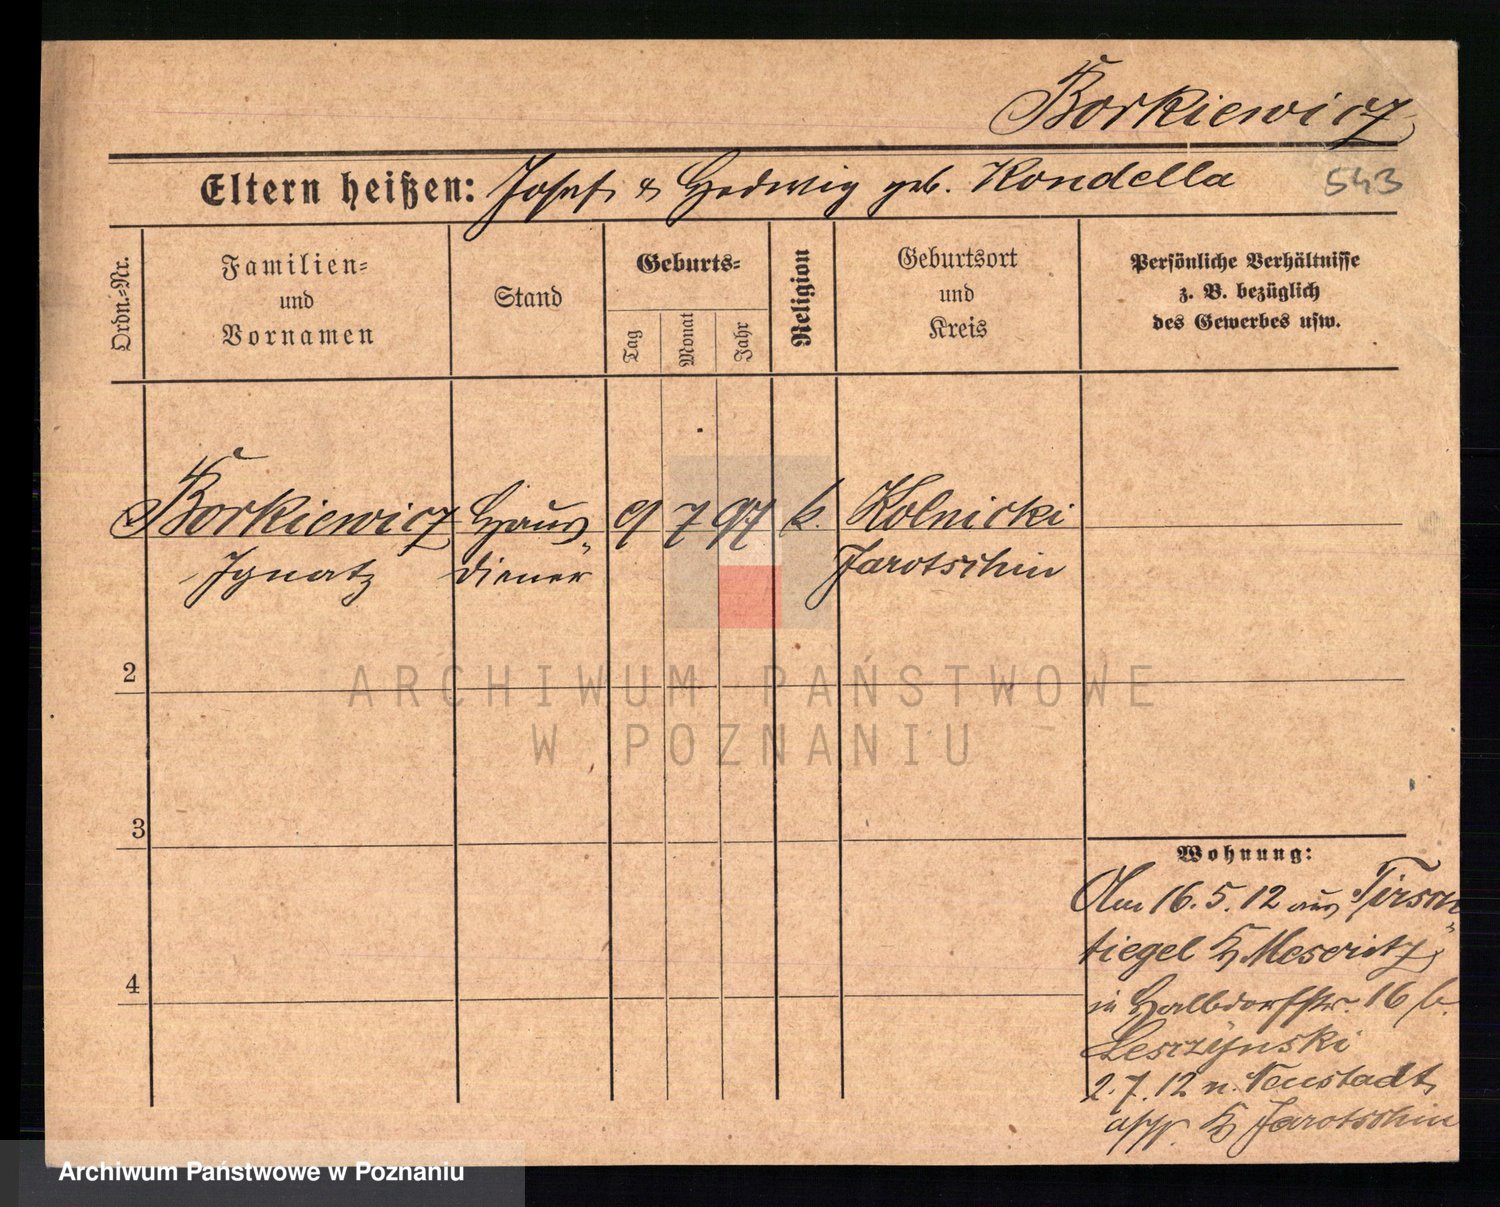 Borkiewicz
Eltern heißen: Josef & Hedwig geb. Kondella
543
Ordn.-Nr.
Familien-
und
Vornamen
Stand
Geburts-
Tag
Monat
Jahr
Religion
Geburtsort
und
Kreis
Persönliche Verhältnisse
z. B. bezüglich
des Gewerbes usw.
Borkiewicz Haus- 9 7 97 k. Kolnicki
Ignatz diener Jarotschin
2
ARCHIWUM PAŃSTWOWE
W POZNANIU
3
Wohnung:
Am 16.5.12 aus Tirsch
tiegel Kr Meseritz
4
in Halbdorfstr. 16 b.
Leszzynski
2.7.12 n. Neustadt
Kr Jarotschin
Archiwum Państwowe w Poznaniu